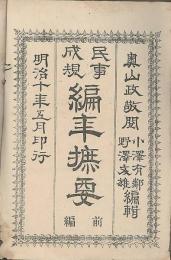 奥山政敬閲
小澤有鄰
野澤友雄
編輯
民事
成規
編年摭要
前編
明治十年五月印行